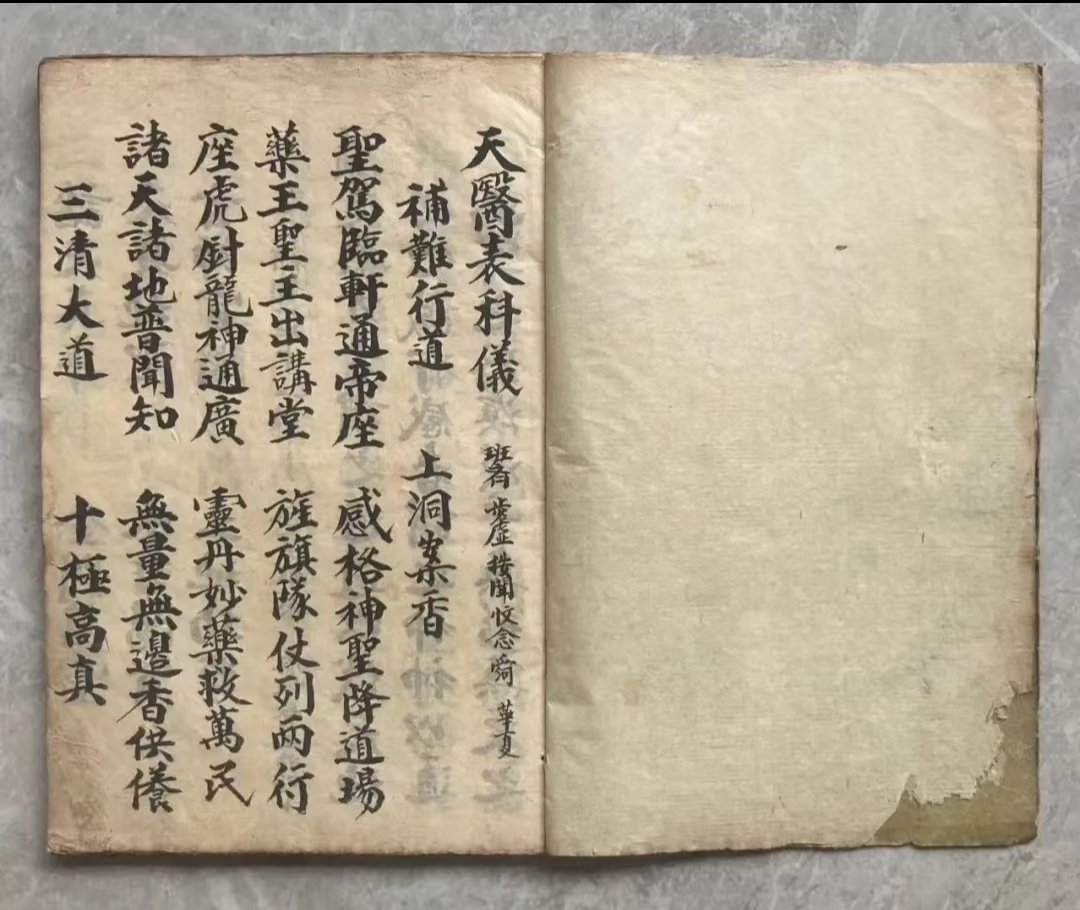 天醫表科儀 班齐 步虛 按聞 仪念 舜河 華夏
補難行道 上洞案香
聖駕臨軒通帝座 感格神聖降道場
藥王聖主出講堂 旌旗隊仗列兩行
座虎針龍神通廣 靈丹妙藥救萬民
諸天諸地普聞知 無量無邊香供養
三清大道 十極高真